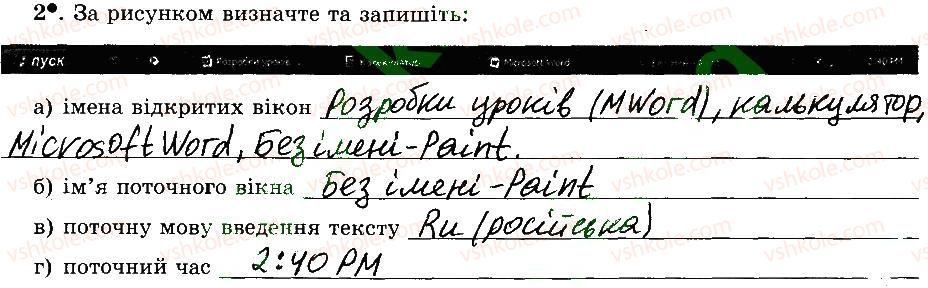 2•. За рисунком визначте та запишіть:
пуск Розробки уроків... Калькулятор Microsoft Word 2:40 PM
а) імена відкритих вікон Розробки уроків (MWord), калькулятор,
Microsoft Word, Без імені-Paint.
б) ім'я поточного вікна Без імені-Paint
в) поточну мову введення тексту Ru (російська)
г) поточний час 2:40 PM